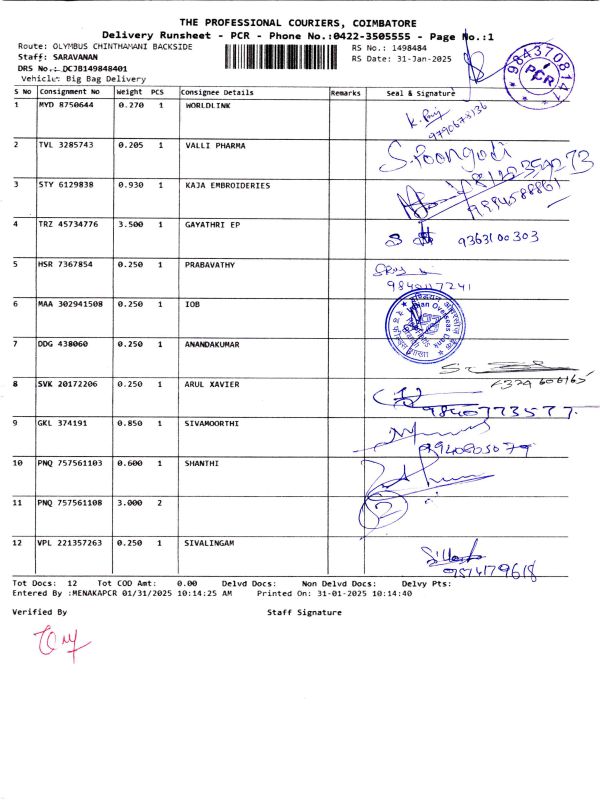 THE PROFESSIONAL COURIERS, COIMBATORE
Delivery Runsheet - PCR - Phone No.:0422-3505555 - Page No.:1
Route: OLYMBUS CHINTHAMANI BACKSIDE RS No.: 1498484
Staff: SARAVANAN RS Date: 31-Jan-2025
DRS No.: DCJB149848401
Vehicle: Big Bag Delivery
9843708141
PCR
S No Consignment No Weight PCS Consignee Details Remarks Seal & Signature
1 MYD 8750644 0.270 1 WORLDLINK
9790673136
2 TVL 3285743 0.205 1 VALLI PHARMA S.Poongodi
3 STY 6129838 0.930 1 KAJA EMBROIDERIES
9994588861
4 TRZ 45734776 3.500 1 GAYATHRI EP 9363100303
5 HSR 7367854 0.250 1 PRABAVATHY
6 MAA 302941508 0.250 1 IOB
Indian Overseas Bank
7 DDG 438060 0.250 1 ANANDAKUMAR
8 SVK 20172206 0.250 1 ARUL XAVIER
9840773577
9 GKL 374191 0.850 1 SIVAMOORTHI
9940805079
10 PNQ 757561103 0.600 1 SHANTHI
11 PNQ 757561108 3.000 2
2
12 VPL 221357263 0.250 1 SIVALINGAM
9574179618
Tot Docs: 12 Tot COD Amt: 0.00 Delvd Docs: Non Delvd Docs: Delvy Pts:
Entered By :MENAKAPCR 01/31/2025 10:14:25 AM Printed On: 31-01-2025 10:14:40
Verified By Staff Signature